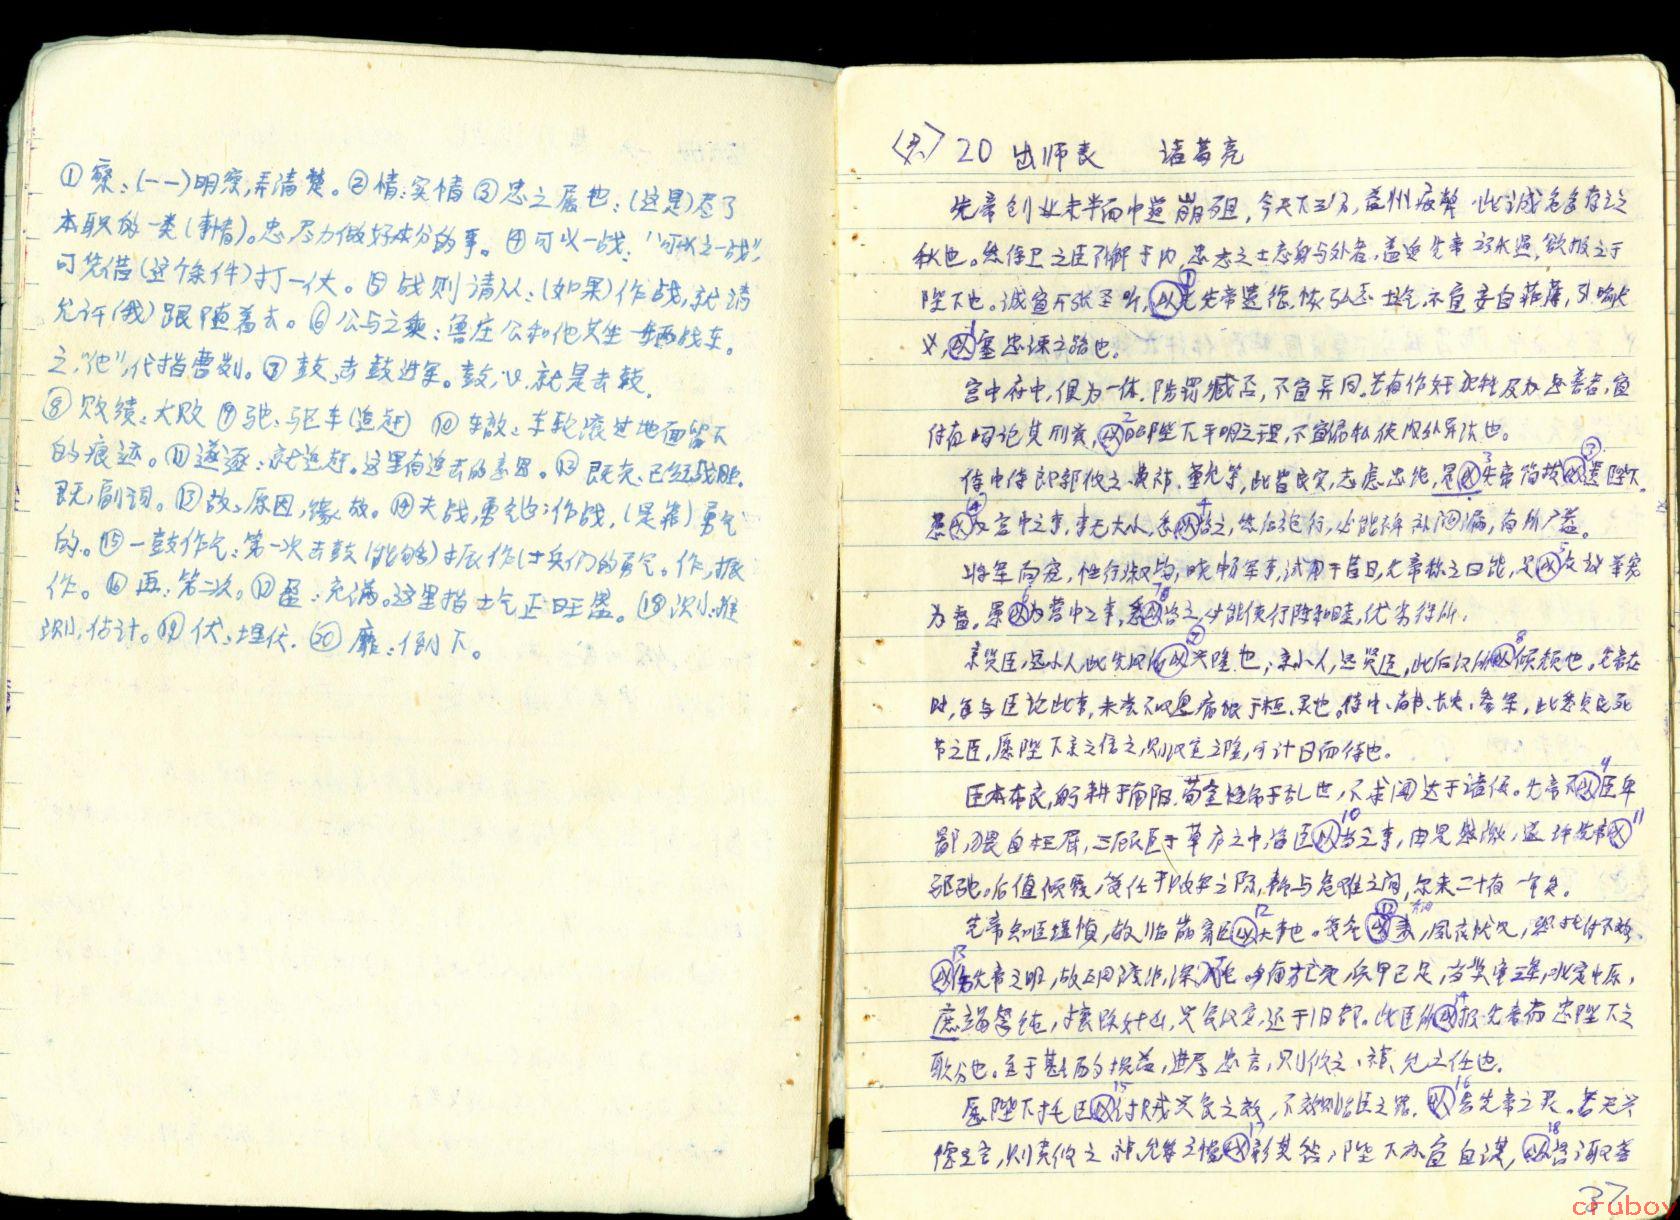 ① 察：(一一)明察，弄清楚。② 情：实情 ③ 忠之属也：(这是)尽了
本职的一类(事情)。忠，尽力做好本分的事。④ 可以一战：“可以之一战”，
可凭借(这个条件)打一仗。⑤ 战则请从：(如果)作战，就请
允许(我)跟随着去。⑥ 公与之乘：鲁庄公和他共坐一辆战车。
之，“他”，代指曹刿。⑦ 鼓：击鼓进军。鼓，v，就是击鼓。
⑧ 败绩：大败 ⑨ 驰：驱车(追赶) ⑩ 车辙：车轮滚过地面留下
的痕迹。⑪ 遂逐：就追赶。这里有追击的意思。⑫ 既克：已经战胜。
既，副词。⑬ 故：原因，缘故。⑭ 夫战，勇气也：作战，(是靠)勇气
的。⑮ 一鼓作气：第一次击鼓(能够)振作(士兵们的)勇气。作，振
作。⑯ 再：第二次。⑰ 盈：充满。这里指士气正旺盛。⑱ 测：推
测，估计。⑲ 伏：埋伏。⑳ 靡：倒下。
20 出师表 诸葛亮
先帝创业未半而中道崩殂，今天下三分，益州疲弊，此诚危急存亡之
秋也。然侍卫之臣不懈于内，忠志之士忘身与外者，盖追先帝之殊遇，欲报之于
陛下也。诚宜开张圣听，以光先帝遗德，恢弘志士之气，不宜妄自菲薄，引喻失
义，以塞忠谏之路也。
宫中府中，俱为一体，陟罚臧否，不宜异同。若有作奸犯科及为忠善者，宜
付有司论其刑赏，以昭陛下平明之理，不宜偏私，使内外异法也。
侍中侍郎郭攸之、费祎、董允等，此皆良实，志虑忠纯，是以先帝简拔以遗陛下。
愚以为宫中之事，事无大小，悉以咨之，然后施行，必能裨补阙漏，有所广益。
将军向宠，性行淑均，晓畅军事，试用于昔日，先帝称之曰能，是以众议举宠
为督。愚以为营中之事，悉以咨之，必能使行阵和睦，优劣得所。
亲贤臣，远小人，此先汉所以兴隆也；亲小人，远贤臣，此后汉所以倾颓也。先帝在
时，每与臣论此事，未尝不叹息痛恨于桓、灵也。侍中、尚书、长史、参军，此悉贞良死
节之臣，愿陛下亲之信之，则汉室之隆，可计日而待也。
臣本布衣，躬耕于南阳，苟全性命于乱世，不求闻达于诸侯。先帝不以臣卑
鄙，猥自枉屈，三顾臣于草庐之中，咨臣以当世之事，由是感激，遂许先帝以
驱驰。后值倾覆，受任于败军之际，奉命与危难之间，尔来二十有一年矣。
先帝知臣谨慎，故临崩寄臣以大事也。受命以来，夙夜忧叹，恐托付不效，
以伤先帝之明，故五月渡泸，深入不毛。今南方已定，兵甲已足，当奖率三军，北定中原，
庶竭驽钝，攘除奸凶，兴复汉室，还于旧都。此臣所以报先帝而忠陛下之
职分也。至于斟酌损益，进尽忠言，则攸之、祎、允之任也。
愿陛下托臣以讨贼兴复之效，不效则治臣之罪，以告先帝之灵。若无兴
德之言，则责攸之、祎、允等之慢，以彰其咎；陛下亦宜自谋，以咨诹善
37
cruboy